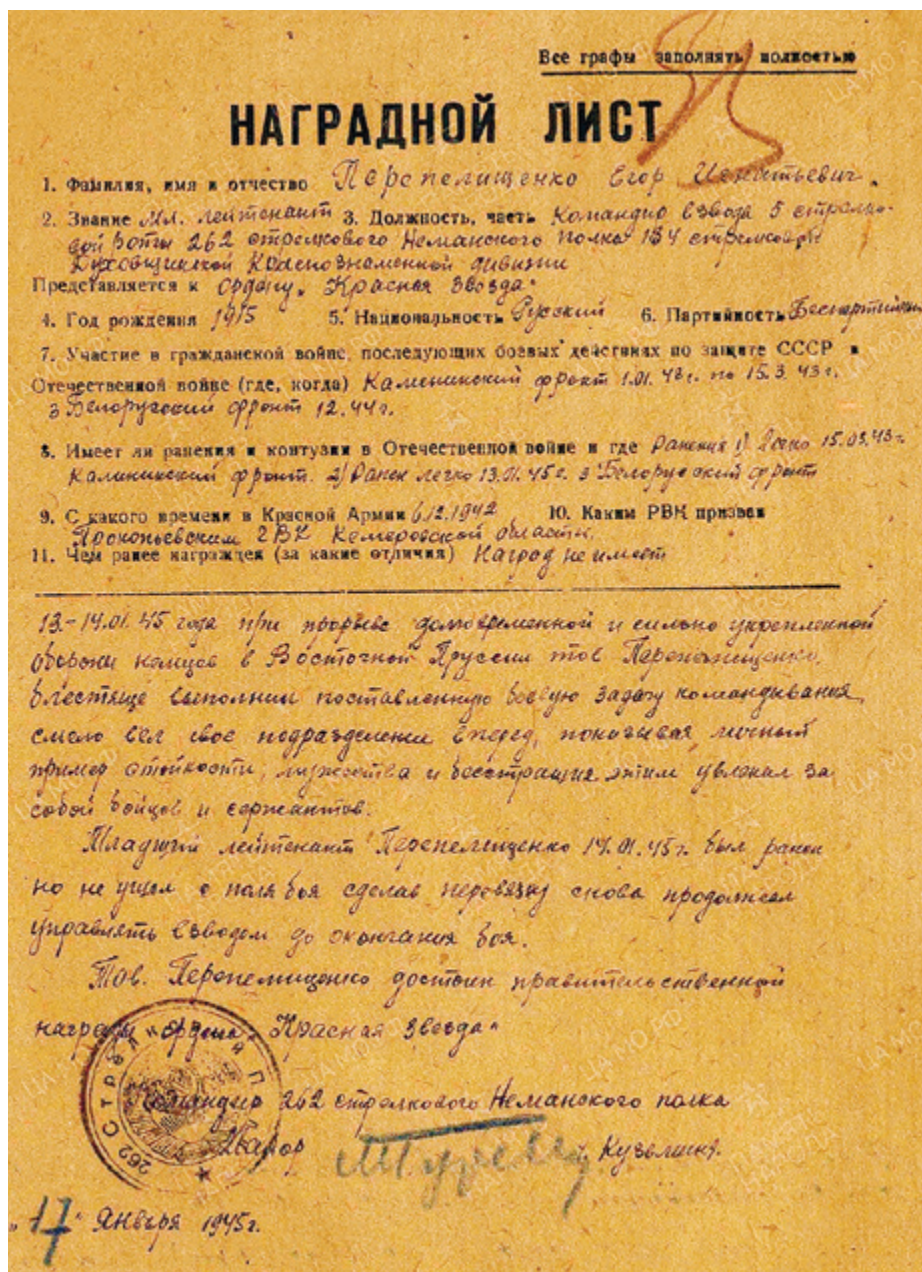 Все графы заполнять полностью
НАГРАДНОЙ ЛИСТ
1. Фамилия, имя и отчество Перепелищенко Егор Игнатьевич.
2. Звание Мл. лейтенант 3. Должность, часть Командир взвода 5 стрелко-
вой роты 262 стрелкового Неманского полка 184 стрелковой
Духовщинской Краснознаменной дивизии
Представляется к ордену "Красная Звезда"
4. Год рождения 1915 5. Национальность Русский 6. Партийность Беспартийный
7. Участие в гражданской войне, последующих боевых действиях по защите СССР и
Отечественной войне (где, когда) Калининский фронт 1.01.43г. по 15.3.43г.
3 Белорусский фронт 12.44г.
8. Имеет ли ранения и контузии в Отечественной войне и где Ранения 1) Легко 15.03.43г.
Калининский фронт. 2) Ранен легко 13.01.45г. 3 Белорусский фронт
9. С какого времени в Красной Армии 6.12.1942 10. Каким РВК призван
Прокопьевским ГВК Кемеровской области.
11. Чем ранее награжден (за какие отличия) Наград не имеет
13-14.01.45 года при прорыве долговременной и сильно укрепленной
обороны немцев в Восточной Пруссии тов Перепелищенко,
блестяще выполнил поставленную боевую задачу командывания,
смело вел свое подразделение вперед, показывая личный
пример стойкости, мужества и бесстрашия этим увлекал за
собой бойцов и сержантов.
Младший лейтенант Перепелищенко 14.01.45г. был ранен
но не ушел с поля боя сделав перевязку снова продолжал
управлять взводом до окончания боя.
Тов. Перепелищенко достоин правительственной
награды ордена "Красная Звезда"
Командир 262 стрелкового Неманского полка
Майор Кузьмин.
"17" Января 1945г.